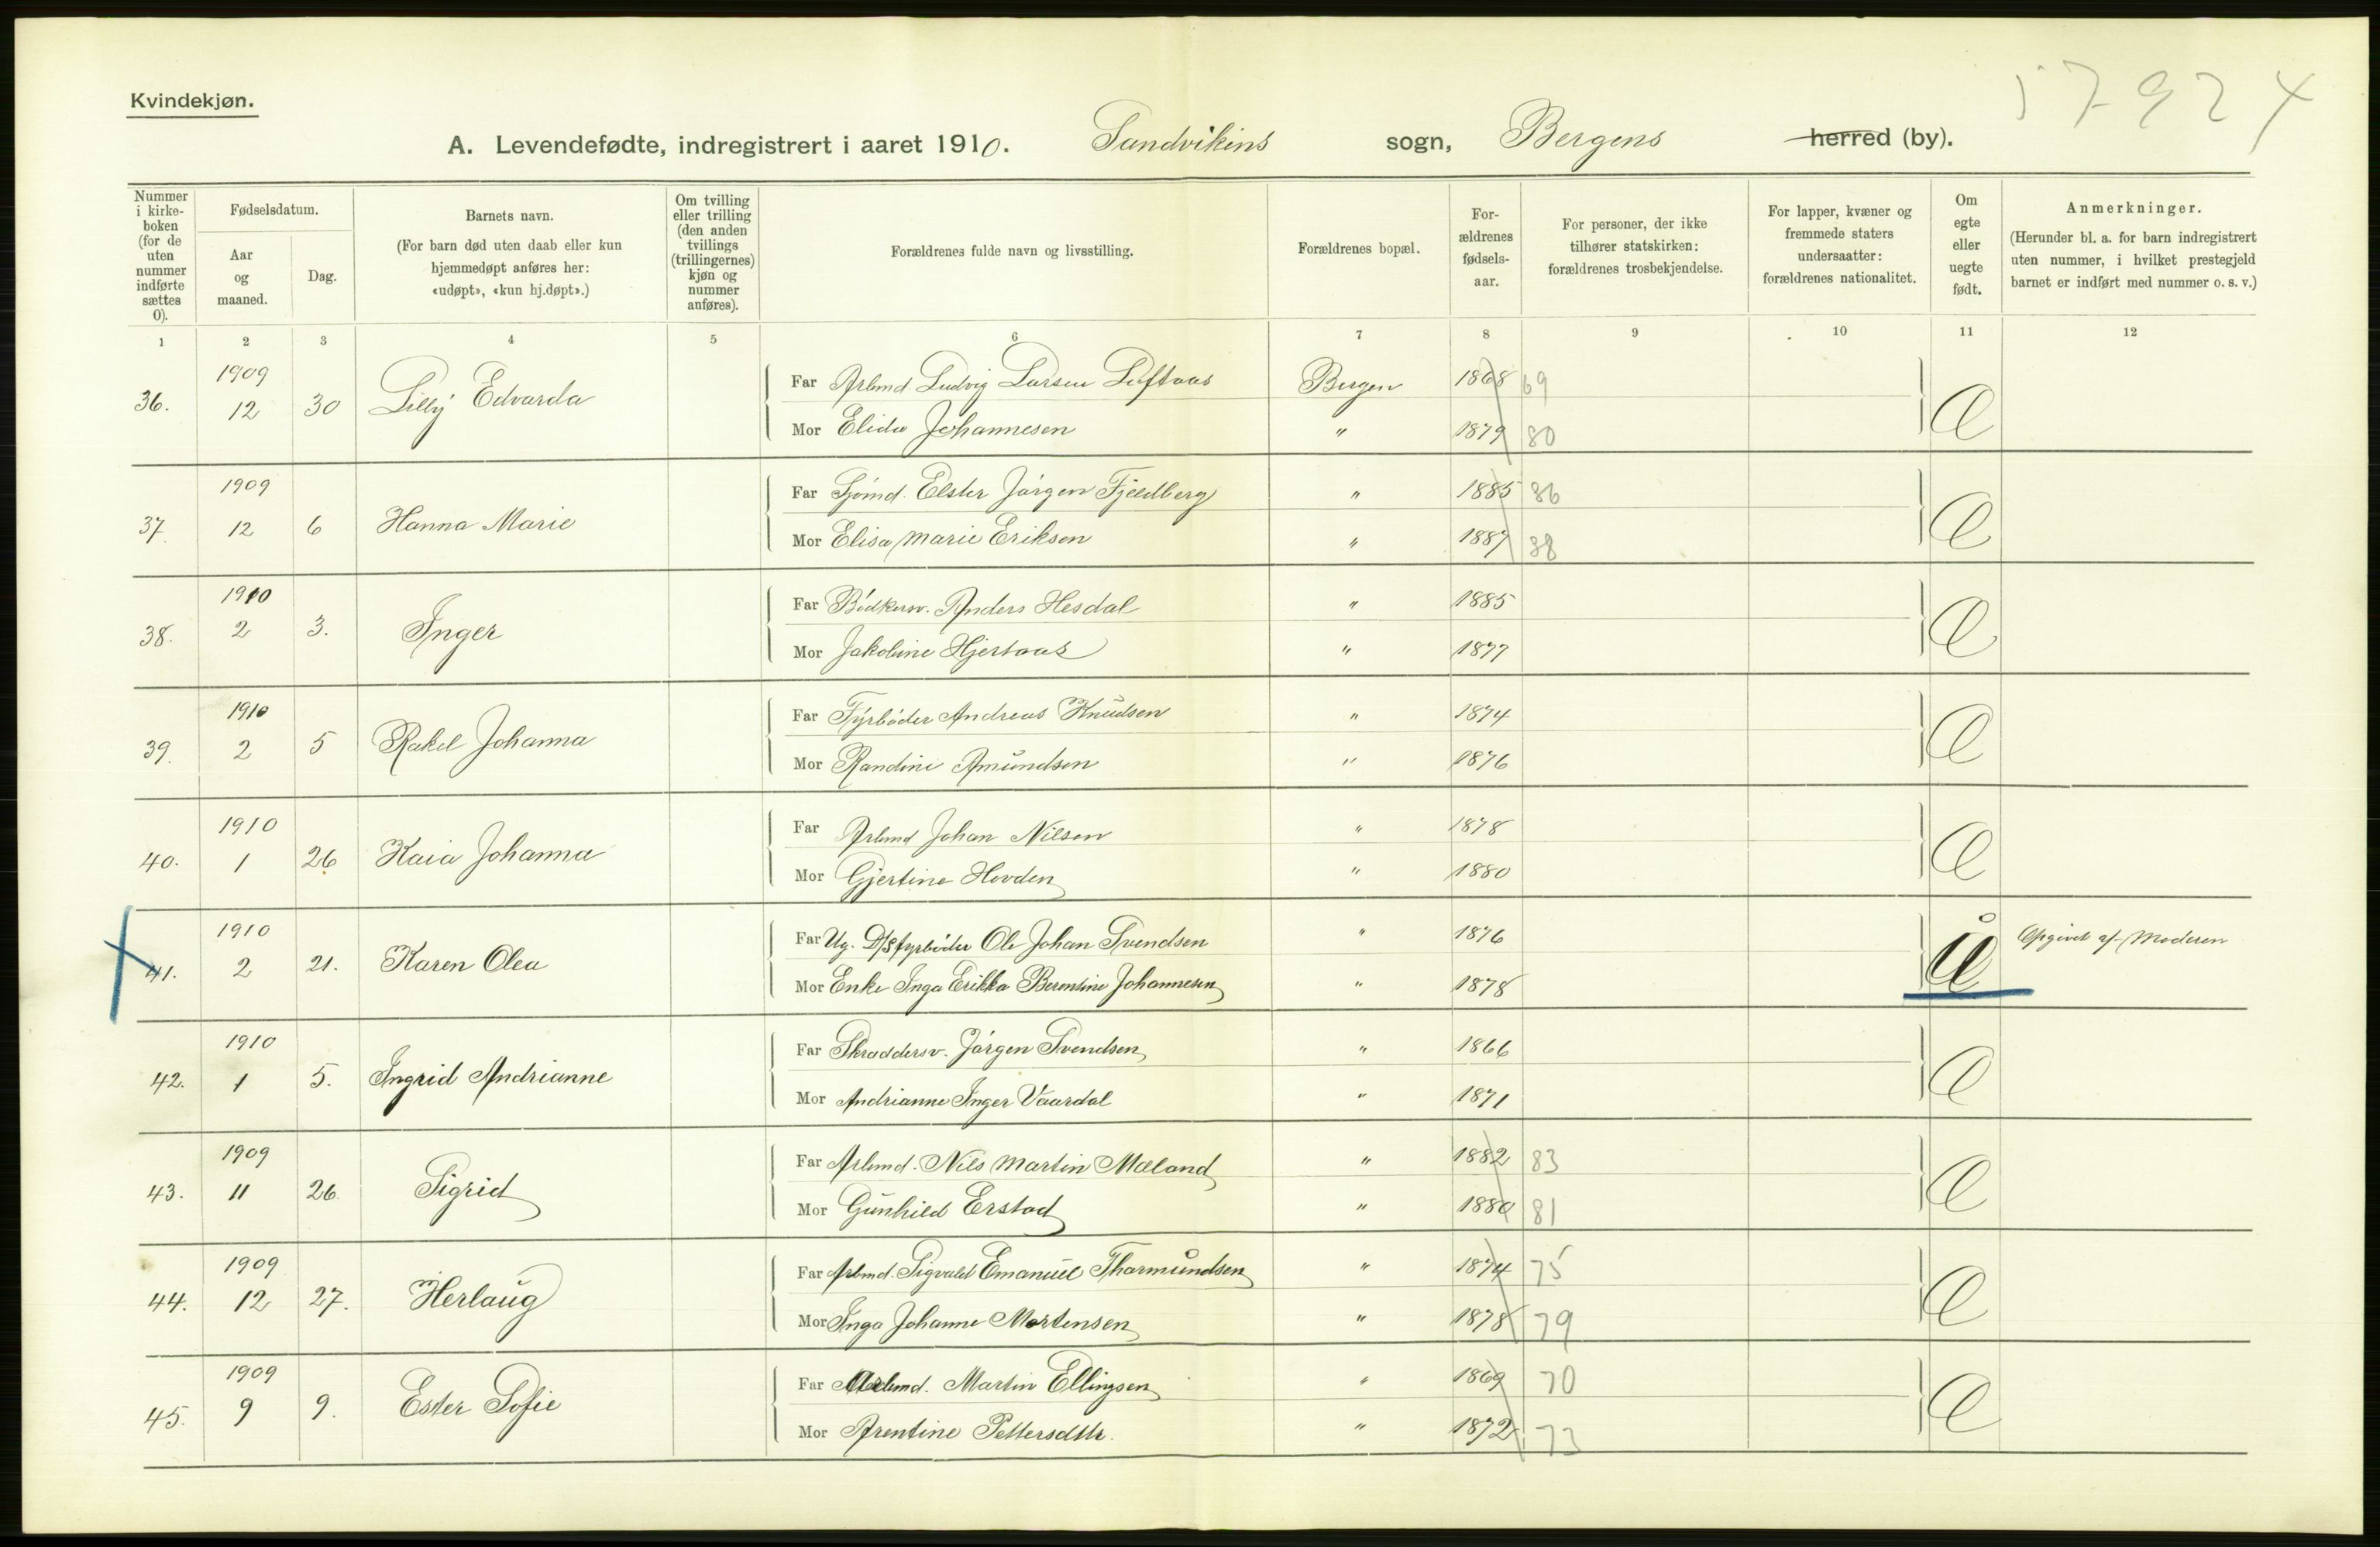 57924
Kvindekjøn.
A. Levendefødte, indregistrert i aaret 1910. Sandvikens sogn, Bergens herred (by).
Nummer i kirke-boken (for de uten nummer indførte sættes 0).
Fødselsdatum.
Aar og maaned.
Dag.
Barnets navn.
(For barn død uten daab eller kun hjemmedøpt anføres her: «udøpt», «kun hj.døpt».)
Om tvilling eller trilling (den anden tvillings (trillingernes) kjøn og nummer anføres).
Forældrenes fulde navn og livsstilling.
Forældrenes bopæl.
For-ældrenes fødsels-aar.
For personer, der ikke tilhører statskirken: forældrenes trosbekjendelse.
For lapper, kvæner og fremmede staters undersaatter: forældrenes nationalitet.
Om egte eller uegte født.
Anmerkninger.
(Herunder bl. a. for barn indregistrert uten nummer, i hvilket prestegjeld barnet er indført med nummer o. s. v.)
1 2 3 4 5 6 7 8 9 10 11 12
36. 1909 12 30 Lilly Edvarda
Far Arbmd Ludvig Larsen Loftaas Bergen 1868 69
Mor Elida Johannesen " 1879 80 E
37. 1909 12 6 Hanna Marie
Far Sjømd. Elster Jørgen Fjeldberg " 1885 86
Mor Elisa Marie Eriksen " 1887 88 E
38. 1910 2 3. Inger
Far Bødkersv. Anders Hesdal " 1885
Mor Jakobine Hjertaas " 1877 E
39. 1910 2 5 Rakel Johanna
Far Fyrbøder Andreas Knudsen " 1874
Mor Randine Amundsen " 1876 E
40. 1910 1 26 Kaia Johanna
Far Arbmd Johan Nilsen " 1878
Mor Gjertine Hovden " 1880 E
41. 1910 2 21. Karen Olea
Far Ug. D/S fyrbøder Ole Johan Svendsen " 1876 Opgivet af Moderen
Mor Enke Inga Erikka Berentine Johannesen " 1878 U
42. 1910 1 5. Ingrid Andrianne
Far Skraddersv. Jørgen Svendsen " 1866
Mor Andrianne Inger Vaardal " 1871 E
43. 1909 11 26. Sigrid
Far Arbmd. Nils Martin Mæland " 1882 83
Mor Gunhild Erstad " 1880 81 E
44. 1909 12 27. Herlaug
Far Arbmd. Sigvald Emanuel Thormundsen " 1874 75
Mor Inga Johanne Mortensen " 1878 79 E
45. 1909 9 9. Ester Sofie
Far Arbmd. Martin Ellingsen " 1869 70
Mor Arentine Pettersdttr. " 1872 73 E